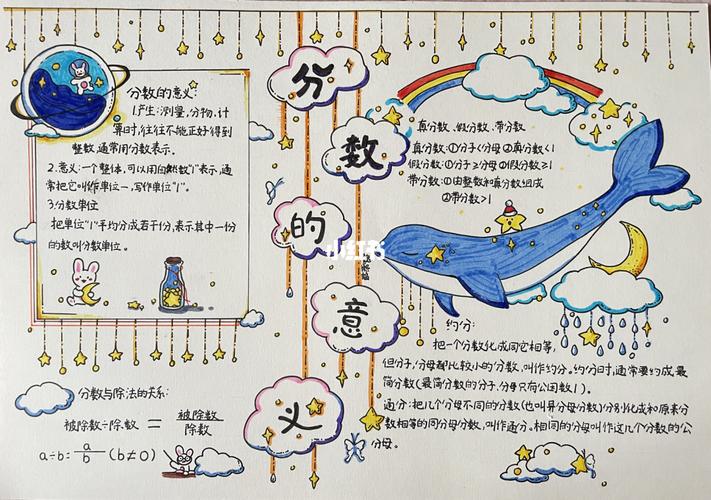 分数的意义
分数的意义:
1.产生:测量,分物,计
算时,往往不能正好得到
整数,通常用分数表示。
2.意义:一个整体,可以用自然数"1"表示,通
常把它叫作单位一,写作单位"1"。
3.分数单位
把单位"1"平均分成若干份,表示其中一份
的数叫分数单位。
分数与除法的关系:
被除数÷除数 = 被除数/除数
a÷b= a/b (b≠0)
真分数、假分数、带分数
真分数:①分子<分母 ②真分数<1
假分数:①分子≥分母 ②假分数≥1
带分数:①由整数和真分数组成
②带分数>1
小红书
约分:
把一个分数化成同它相等,
但分子,分母都比较小的分数,叫作约分。约分时,通常要约成最
简分数(最简分数的分子,分母只有公因数1)。
通分:把几个分母不同的分数(也叫异分母分数)分别化成和原来分
数相等的同分母分数,叫作通分。相同的分母叫作这几个分数的公
分母。